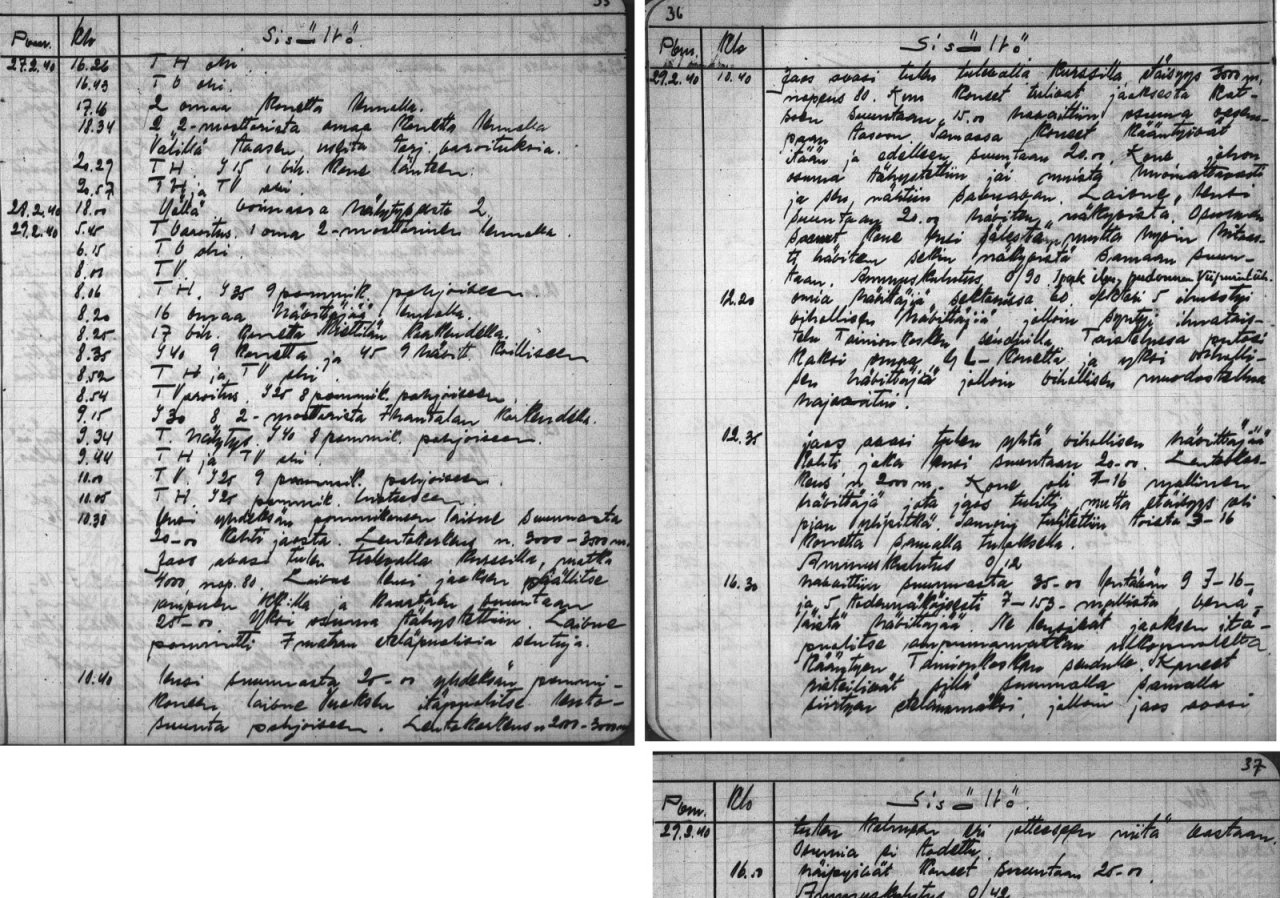 35
Pvm. Klo Sisältö
27.2.40 16.26 T H ohi.
16.43 T V ohi.
17.16 2 omaa konetta lennolla.
18.34 2 2-moottorista omaa konetta lennolla
Välillä Aasen meita tarj. varoituksia.
20.27 T H. S 15 1 vih. kone länteen.
20.57 T H ja T V ohi.
28.2.40 18.00 Yöllä voimassa hälytysaste 2.
29.2.40 5.45 T Varoitus. 1 oma 2-moottorinen lennolla.
6.15 T V ohi.
8.00 T V.
8.06 T H. S 35 9 pommik. pohjoiseen.
8.20 16 omaa hävittäjää lennolla.
8.25 17 vih. konetta korkeudella.
8.35 S 40 9 konetta ja 45 9 hävitt. koilliseen
8.52 T H ja TV ohi.
8.54 T Varoitus. S 25 8 pommik. pohjoiseen.
9.15 S 30 8 2-moottorista korkeudella.
9.34 T. hälytys. S 40 8 pommik. pohjoiseen.
9.44 T H ja TV ohi.
10.00 T V. S 25 9 pommik. pohjoiseen.
10.05 T H. S 25 pommik. luoteeseen.
10.30 lensi yhdeksän pommikoneen laivue suunnasta
20-00 kohti jaosta. Lentokorkeus n. 3000-3500 m.
Jaos avasi tulen tulevalla kurssilla, matka
4000 nop. 80. Laivue lensi jaoksen päälitse
ja suuntaan
25-00. Yksi osuma tähystettiin. Laivue
pommitti Imatran eteläpuolisia seutuja.
10.40 lensi suunnasta 25-00 yhdeksän pommi-
koneen laivue Vuoksen itäpuolitse lento-
suunta pohjoiseen. Lentokorkeus n. 2000-3000 m
36
Pvm. Klo Sisältö
29.2.40 10.40 Jaos avasi tulen tulevalla kurssilla, etäisyys 3000 m,
nopeus 80. Kun koneet tulivat jaoksesta kat-
soen suuntaan 15.00 havaittiin osuma
tasoon. Samassa koneet kääntyivät
itään ja edelleen suuntaan 20.00. Kone johon
osuma tähystettiin jäi muista huomattavasti
ja sen nähtiin savuavan. Laivue lensi
suuntaan 20.00 häviten näkyvistä. Osuman
saanut kone lensi jälestä mutta hyvin hitaas-
ti häviten sekin näkyvistä samaan suun-
taan. Ammuskulutus 0/90.
12.20 omia hävittäjiä. sektorissa 20. Sektori 5 ilmestyi
vihollisen hävittäjiä jolloin syntyi ilmatais-
telu Tainionkosken seuduilla. Taistelussa putosi
kaksi omaa GL-konetta ja yksi viholli-
sen hävittäjiä jolloin vihollisen muodostelma
hajaantui.
12.35 jaos avasi tulen yhtä vihollisen hävittäjää
kohti, joka lensi suuntaan 20-00. Lentokor-
keus n. 2000 m. Kone oli I-16 mallinen
hävittäjä jota jaos tulitti mutta etäisyys oli
pian ylipitkä. Samoin tulitettiin toista I-16
konetta samalla tuloksella.
Ammuskulutus 0/12
16.30 havaittiin suunnasta 35-00 lentävän 9 I-16-
ja 5 todennäköisesti I-153-mallista venä-
läistä hävittäjää. Ne lensivät jaoksen itä-
puolitse ampumamatkan ulkopuolella
kääntyen Tainionkosken seudulla. Koneet
risteilivät sillä suunnalla samalla
siirtyen etelämmäksi, jolloin jaos avasi
37
Pvm. Klo Sisältö
29.2.40 tulen ei jotteoppen niitä vastaan.
Osumia ei todettu.
16.50 häipyivät koneet suuntaan 25-00.
Ammuskulutus 0/42